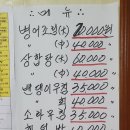 ※ 메 뉴 ※
병어조림(大) 70000원
〃 (中) 40000 〃
삼합탕(大) 60000 〃
〃 (中) 40000 〃
밴댕이무침 35000 〃
〃 회 40000 〃
소라무침 35000 〃